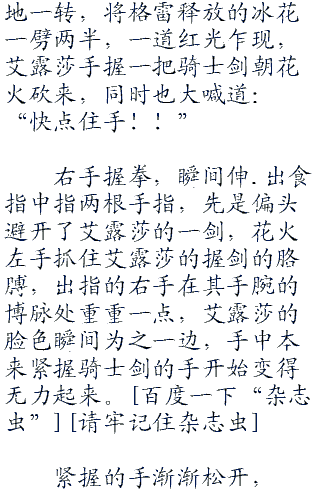 地一转，将格雷释放的冰花
一劈两半，一道红光乍现，
艾露莎手握一把骑士剑朝花
火砍来，同时也大喊道：
“快点住手！！”
右手握拳，瞬间伸.出食
指中指两根手指，先是偏头
避开了艾露莎的一剑，花火
左手抓住艾露莎的握剑的胳
膊，出指的右手在其手腕的
博脉处重重一点，艾露莎的
脸色瞬间为之一边，手中本
来紧握骑士剑的手开始变得
无力起来。[百度一下“杂志
虫”][请牢记住杂志虫]
紧握的手渐渐松开，